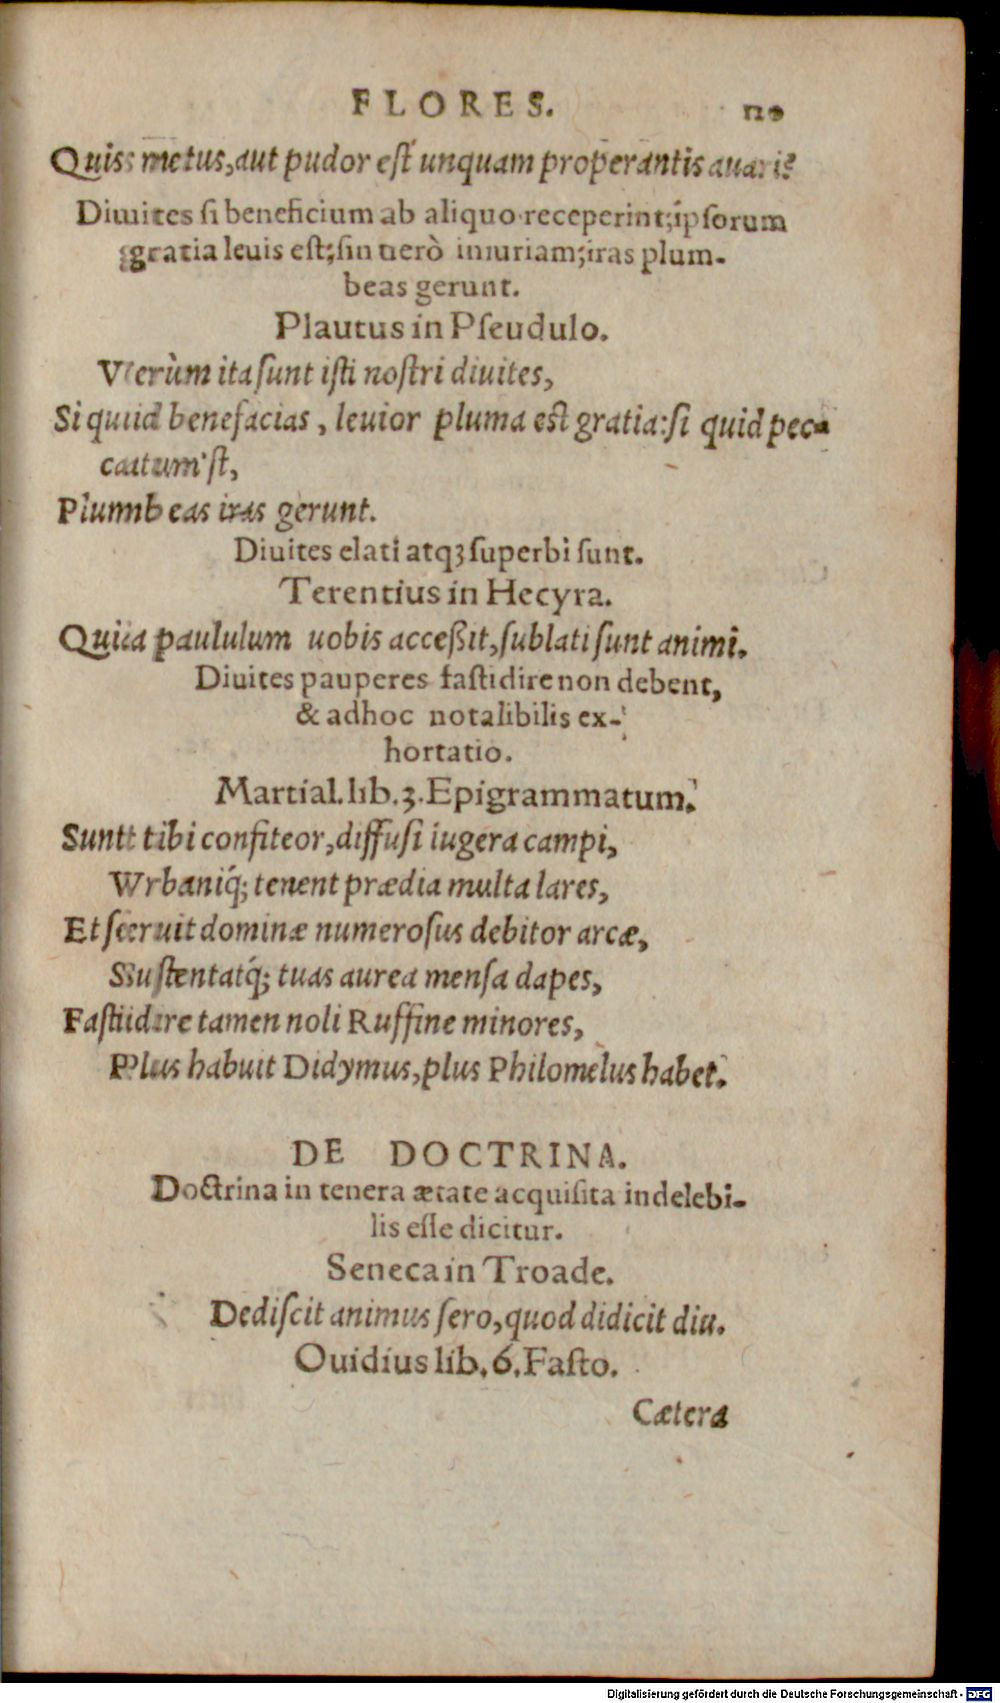 FLORES. 120
Quis metus, aut pudor est unquam properantis auari?
Diuites si beneficium ab aliquo receperint; ipsorum
gratia leuis est; sin uerò iniuriam; iras plum-
beas gerunt.
Plautus in Pseudulo.
Verùm ita sunt isti nostri diuites,
Si quid benefacias, leuior pluma est gratia: si quid pec-
catum'st,
Plumbeas iras gerunt.
Diuites elati atqꝫ superbi sunt.
Terentius in Hecyra.
Quia paululum uobis acceßit, sublati sunt animi.
Diuites pauperes fastidire non debent,
& adhoc notabilis ex-
hortatio.
Martial. lib. 3. Epigrammatum.
Sunt tibi confiteor, diffusi iugera campi,
Vrbaniq́; tenent prædia multa lares,
Et seruit dominæ numerosus debitor arcæ,
Sustentatq́; tuas aurea mensa dapes,
Fastidire tamen noli Ruffine minores,
Plus habuit Didymus, plus Philomelus habet.
DE DOCTRINA.
Doctrina in tenera ætate acquisita indelebi-
lis esse dicitur.
Seneca in Troade.
Dediscit animus sero, quod didicit diu.
Ouidius lib. 6. Fasto.
Cætera
Digitalisierung gefördert durch die Deutsche Forschungsgemeinschaft - DFG